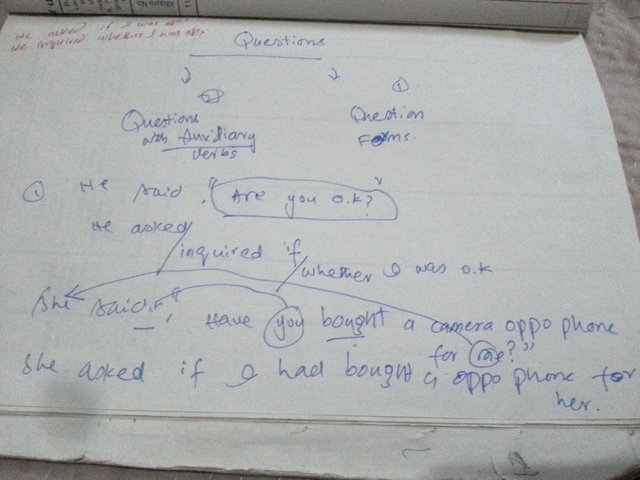 Khasra No
11
He asked if I was ok?
He inquired whether I was ok?
Questions
② ①
Questions
with Auxiliary
verbs
Question
Forms.
① He said, "Are you o.k?"
He asked/
inquired if
/whether I was o.k
She said, "Have you bought a camera oppo phone
for me?"
She asked if I had bought a oppo phone for
her.